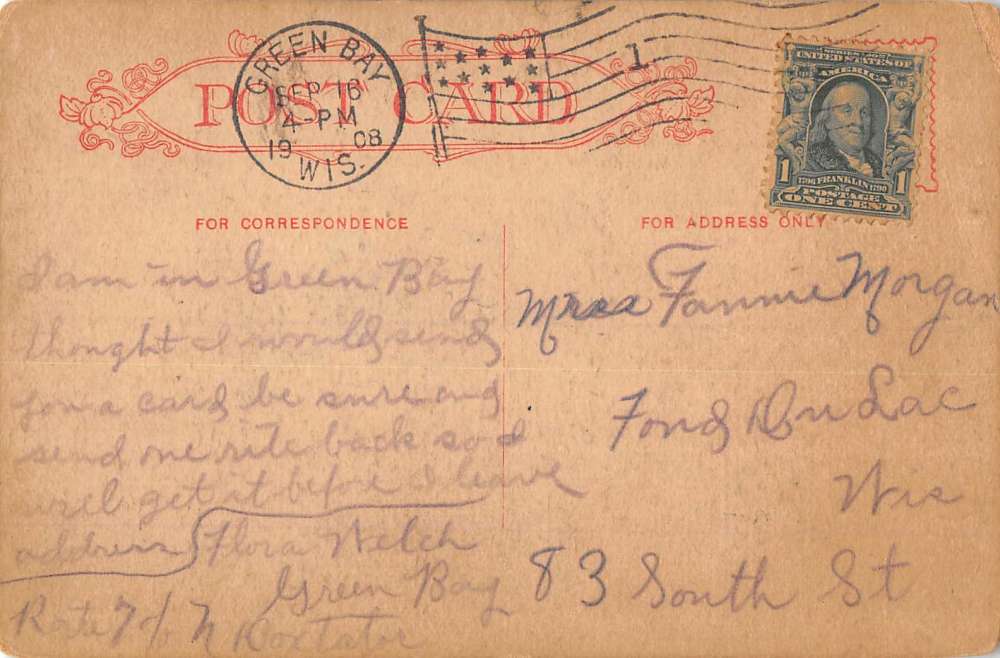 GREEN BAY
SEP 16
4-PM
1908
WIS.
1
POST CARD
SERIES 1902
UNITED STATES OF
AMERICA
1 1
1706 FRANKLIN 1790
POSTAGE
ONE CENT
FOR CORRESPONDENCE
I am in Green Bay
thought I would send
you a card be sure and
send one rite back so I
will get it before I leave
address Flora Welch
Green Bay
Rute 7 c/o N Doxtator
FOR ADDRESS ONLY
Fannie Morgan
Fond Du Lac
Wis
83 South St